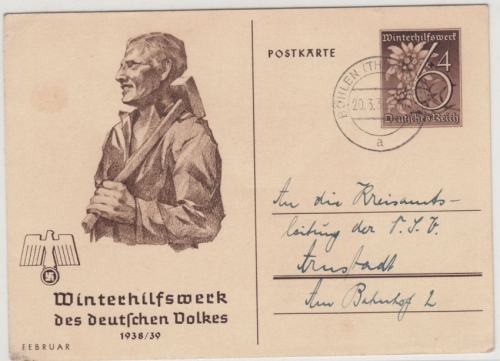 POSTKARTE
Winterhilfswerk
6+4
Deutsches Reich
BÖHLEN (TH
20.3.3
a
An die Kreisamts-
leitung der N.S.V.
Arnstadt
Am Bahnhof 2
Winterhilfswerk
des deutschen Volkes
1938/39
FEBRUAR